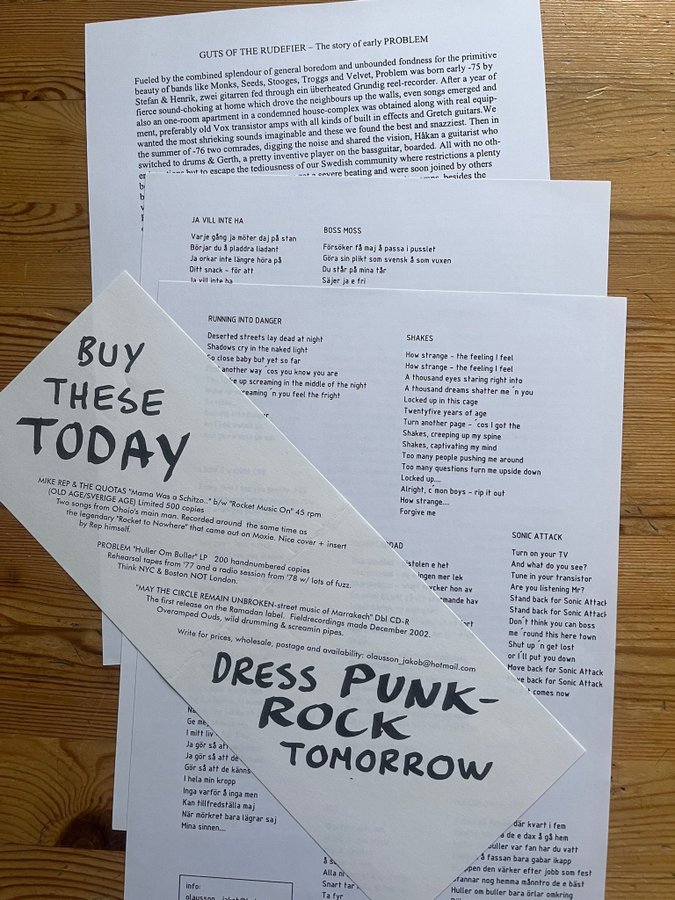 GUTS OF THE RUDEFIER – The story of early PROBLEM
Fueled by the combined splendour of general boredom and unbounded fondness for the primitive
beauty of bands like Monks, Seeds, Stooges, Troggs and Velvet, Problem was born early -75 by
Stefan & Henrik, zwei gitarren fed through ein überheated Grundig reel-recorder. After a year of
fierce sound-choking at home which drove the neighbours up the walls, even songs emerged and
also an one-room apartment in a condemned house-complex was obtained along with real equip-
ment, preferably old Vox transistor amps with all kinds of built in effects and Gretch guitars.We
wanted the most shrieking sounds imaginable and these we found the best and snazziest. Then in
the summer of -76 two comrades, digging the noise and shared the vision, Håkan a guitarist who
switched to drums & Gerth, a pretty inventive player on the bassguitar, boarded. All with no oth-
but to escape the tediousness of our Swedish community where restrictions a plenty
a severe beating and were soon joined by others
besides the
JA VILL INTE HA
Varje gång ja möter daj på stan
Börjar du å pladdra liadant
Ja orkar inte längre höra på
Ditt snack – för att
Ja vill inte ha
BOSS MOSS
Försöker få maj å passa i pusslet
Göra sin plikt som svensk å som vuxen
Du står på mina tår
Säjer ja e fri
RUNNING INTO DANGER
Deserted streets lay dead at night
Shadows cry in the naked light
So close baby but yet so far
another way ´cos you know you are
up screaming in the middle of the night
screaming ´n you feel the fright
SHAKES
How strange – the feeling I feel
How strange – the feeling I feel
A thousand eyes staring right into
A thousand dreams shatter me ´n you
Locked up in this cage
Twentyfive years of age
Turn another page – ´cos I got the
Shakes, creeping up my spine
Shakes, captivating my mind
Too many people pushing me around
Too many questions turn me upside down
Locked up....
Alright, c´mon boys – rip it out
How strange....
Forgive me
SONIC ATTACK
Turn on your TV
And what do you see?
Tune in your transistor
Are you listening Mr?
Stand back for Sonic Attack
Stand back for Sonic Attack
Don´t think you can boss
me ´round this here town
Shut up ´n get lost
or I´ll put you down
Move back for Sonic Attack
back for Sonic Attack
comes now
BUY
THESE
TODAY
MIKE REP & THE QUOTAS "Mama Was a Schitzo..." b/w "Rocket Music On" 45 rpm
(OLD AGE/SVERIGE AGE) Limited 500 copies
Two songs from Ohoio's main man. Recorded around the same time as
the legendary "Rocket to Nowhere" that came out on Moxie. Nice cover + insert
by Rep himself.
PROBLEM "Huller Om Buller" LP 200 handnumbered copies
Rehearsal tapes from '77 and a radio session from '78 w/ lots of fuzz.
Think NYC & Boston NOT London.
"MAY THE CIRCLE REMAIN UNBROKEN-street music of Marrakech" Dbl CD-R
The first release on the Ramadan label. Fieldrecordings made December 2002.
Overamped Ouds, wild drumming & screamin pipes.
Write for prices, wholesale, postage and availability: olausson_jakob@hotmail.com
DRESS PUNK-
ROCK
TOMORROW
I mitt liv
Ja gör så att
Ja gör så att de
Gör så att de känns
I hela min kropp
Inga varför å inga men
Kan tillfredställa maj
När mörkret bara lägrar saj
Mina sinnen...
info:
Alla
Snart tar
Ta fyr
där kvart i fem
de e dax å gå hem
buller var fan har du vatt
å fassan bara gabar ikapp
den värker efter jobb som fest
nog hemma månntro de e bäst
Huller om buller bara örlar omkring